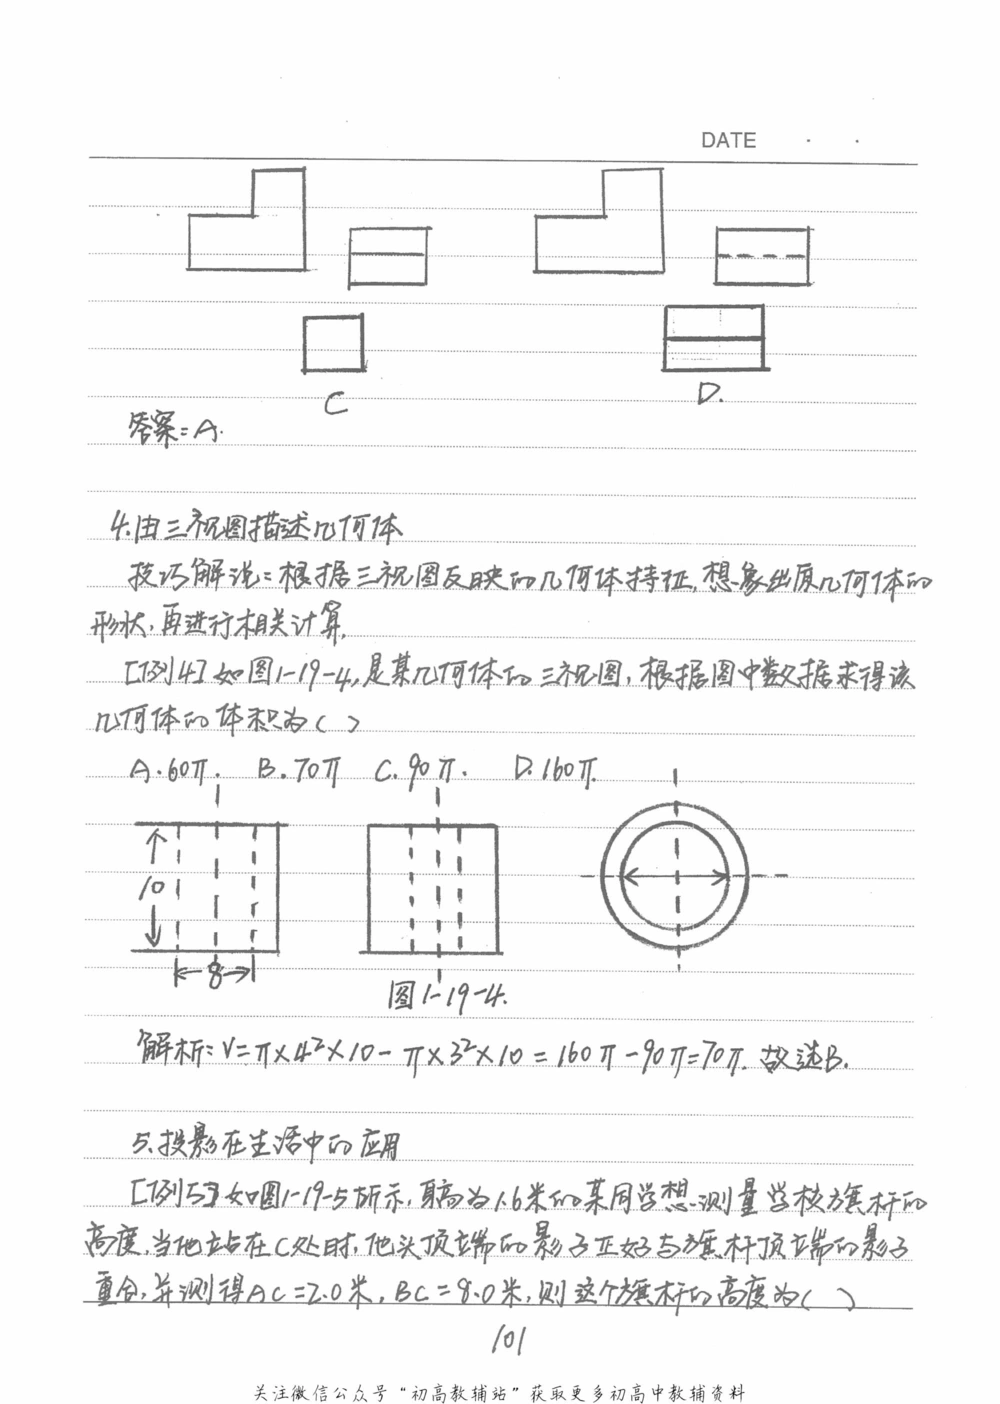 DATE · ·
C
D.
答案:A.
4.由三视图描述几何体
技巧解说:根据三视图反映的几何体特征,想象出原几何体的
形状,再进行相关计算.
[例4]如图1-19-4,是某几何体的三视图,根据图中数据求得该
几何体的体积为( )
A.60π. B.70π C.90π. D.160π.
10
8
图1-19-4.
解析:V=π×4²×10-π×3²×10=160π-90π=70π.故选B.
5.投影在生活中的应用
[例5]如图1-19-5所示,身高为1.6米的某同学想测量学校旗杆的
高度,当他站在C处时,他头顶端的影子正好与旗杆顶端的影子
重合,并测得AC=2.0米,BC=8.0米,则这个旗杆的高度为( )
101
关注微信公众号“初高教辅站”获取更多初高中教辅资料